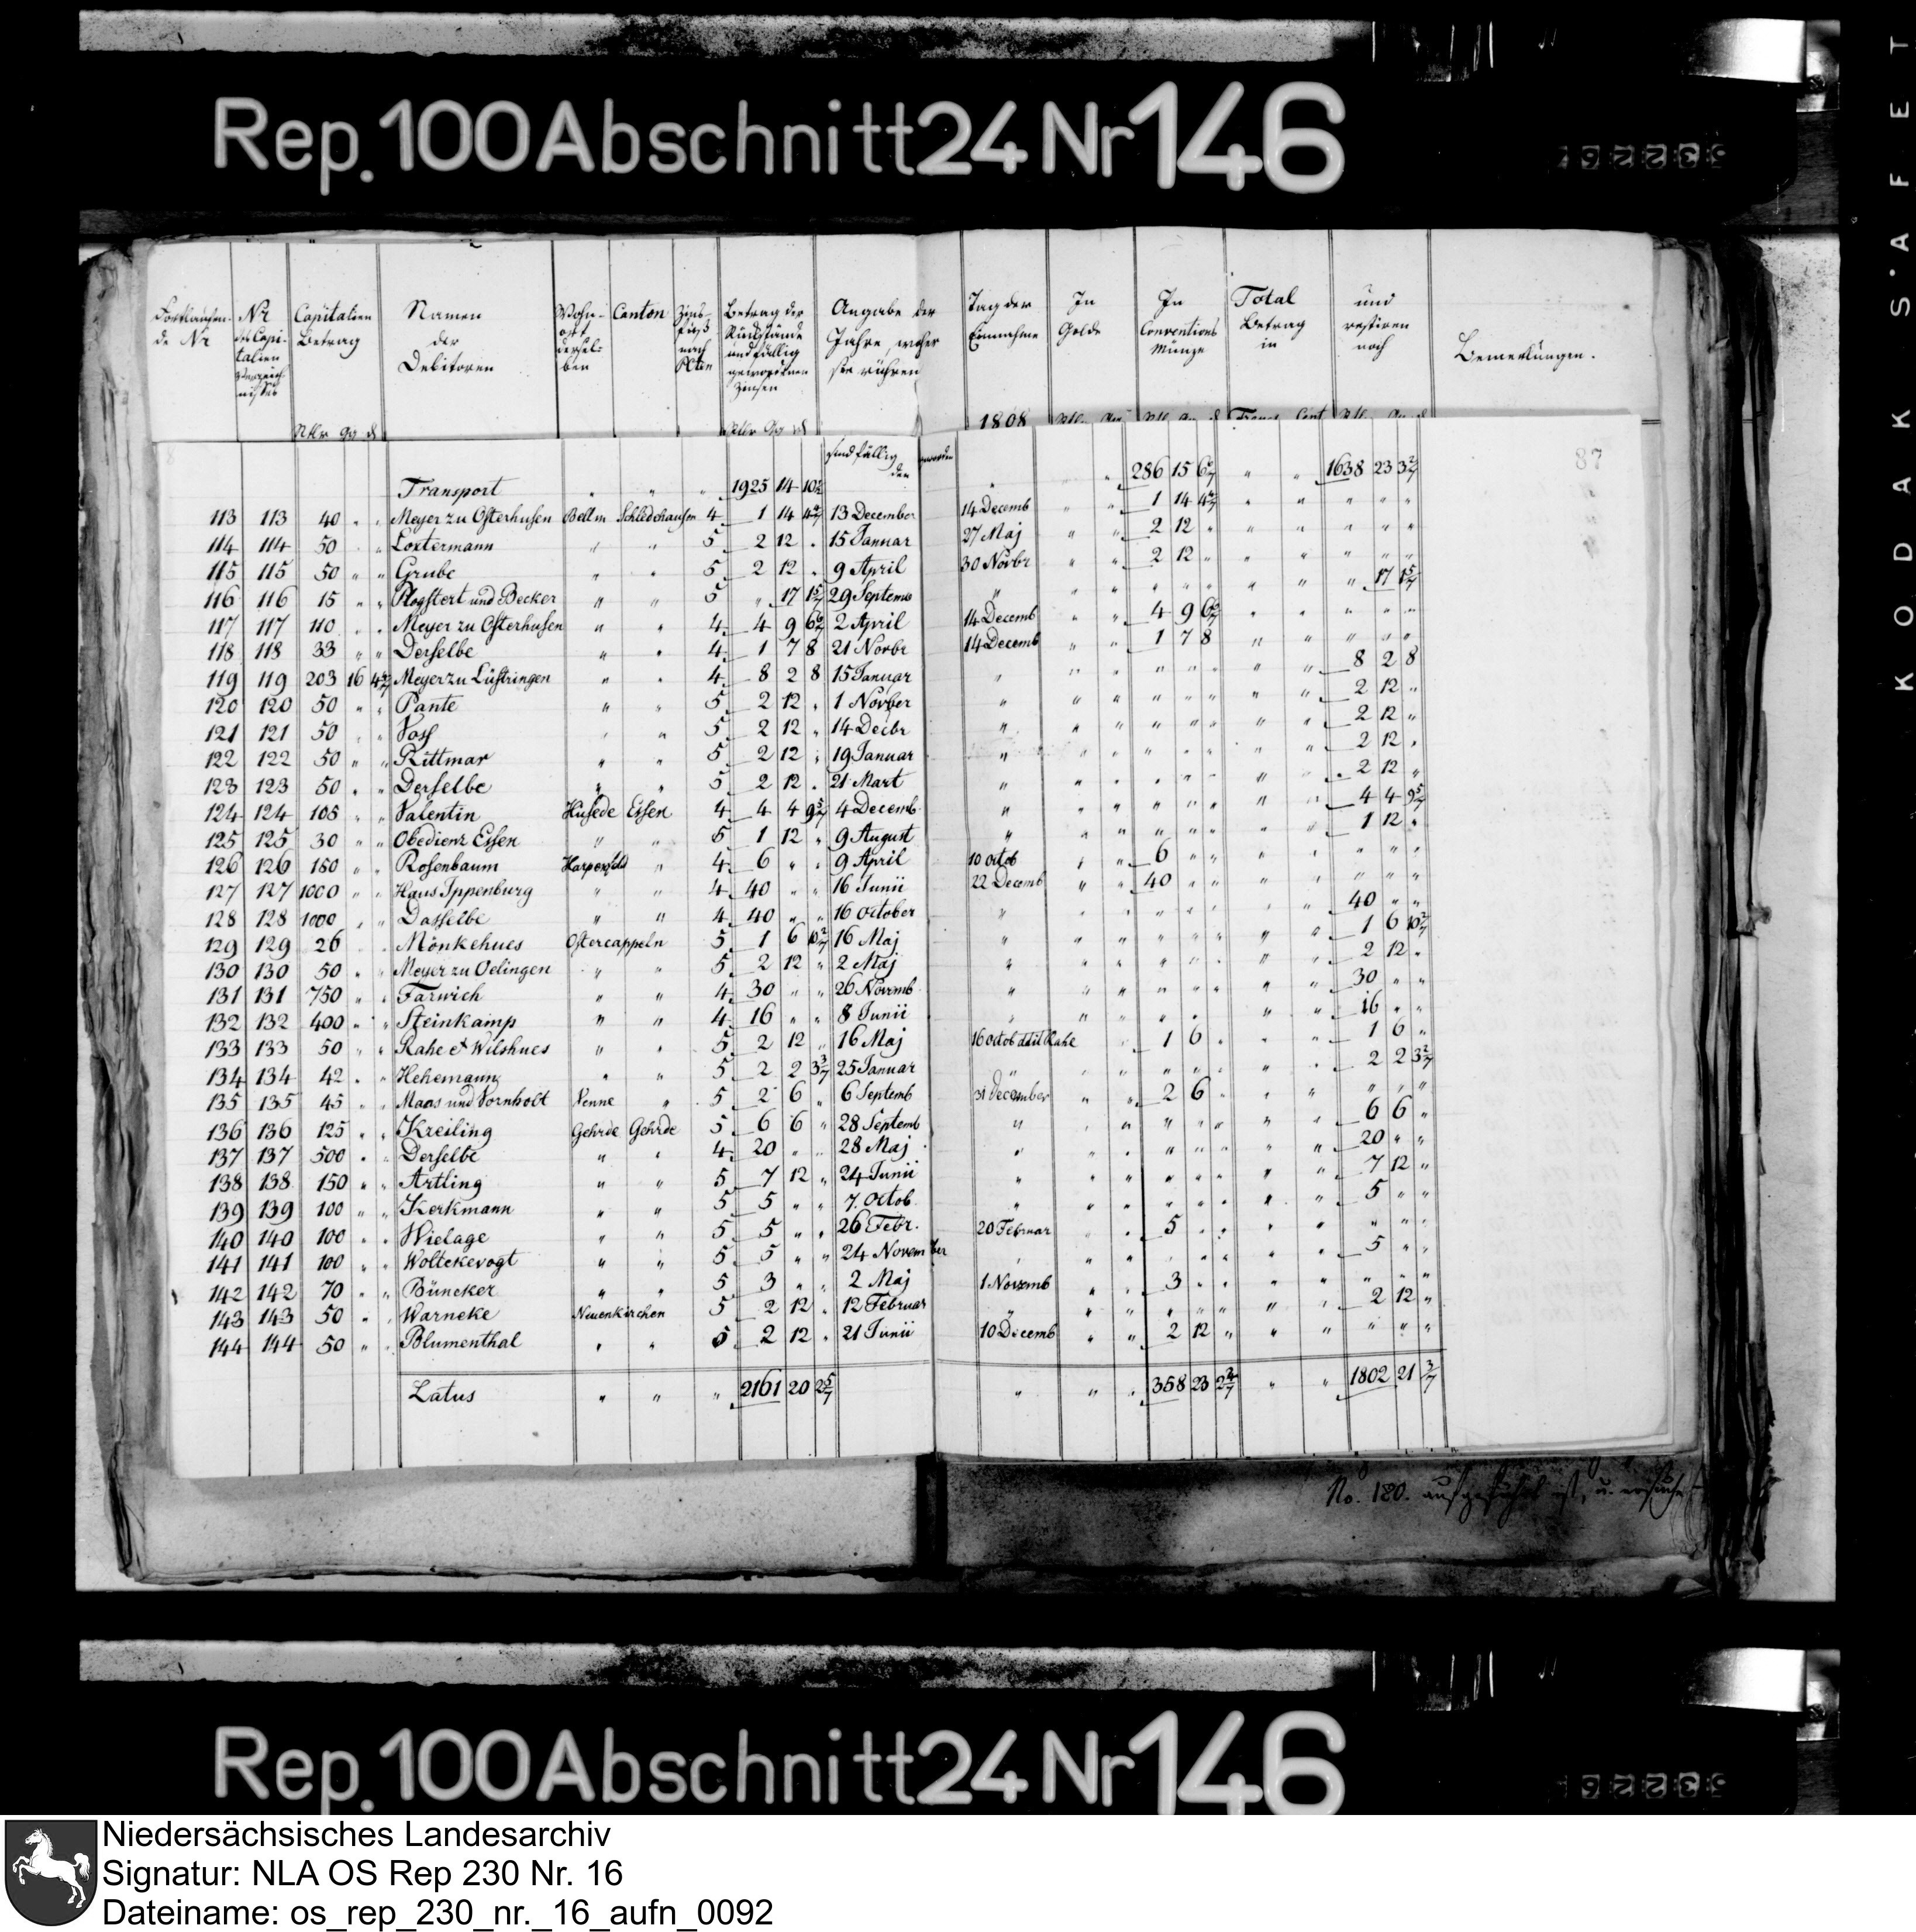 Rep. 100 Abschnitt 24 Nr 146
KODAK S'AFET
Fortlaufen- de Nr | Nr des Capi- talien Verzeich- nisses | Capitalien Betrag | Namen der Debitoren | Wohn- ort dersel- ben | Canton | Zins- fuß nach | Betrag der Rückstände und fällig gewordenen Zinsen | Angabe der Jahre, woher sie rühren | Tag der Einnahme | In Golde | In Conventions Münze | Total Betrag in | und restiren noch | Bemerkungen.
Rtlr ggr d | Rtlr ggr d | 1808
sind fällig geworden den
87
Transport " " " 1925 14 10 2/7 " " 286 15 6 6/7 " " 1638 23 3 3/7
113 113 40 " " Meyer zu Osterhusen Bellm Schledehausen 4 1 14 4 4/7 13 December 14 Decemb " " 1 14 4 4/7 " " " " "
114 114 50 " " Loxtermann " " 5 2 12 " 15 Januar 27 Maj " " 2 12 " " " " " "
115 115 50 " " Grube " " 5 2 12 " 9 April 30 Novbr " " 2 12 " " " " " "
116 116 15 " " Plogstert und Becker " " 5 " 17 1 5/7 29 Septemb " " " " " " " " " 17 1 5/7
117 117 110 " " Meyer zu Osterhusen " " 4 4 9 6 6/7 2 April 14 Decemb " " 4 9 6 6/7 " " " " "
118 118 33 " " Derselbe " " 4 1 7 8 21 Novbr 14 Decemb " " 1 7 8 " " " " "
119 119 203 16 4 4/7 Meyer zu Lüstringen " " 4 8 2 8 15 Januar " " " " " " " " 8 2 8
120 120 50 " " Pante " " 5 2 12 " 1 Novber " " " " " " " " 2 12 "
121 121 50 " " Voss " " 5 2 12 " 14 Decbr " " " " " " " " 2 12 "
122 122 50 " " Rittmar " " 5 2 12 " 19 Januar " " " " " " " " 2 12 "
123 123 50 " " Derselbe " " 5 2 12 " 21 Mart " " " " " " " " 2 12 "
124 124 105 " " Valentin Hüsede Essen 4 4 4 9 5/7 4 Decemb " " " " " " " " 4 4 9 5/7
125 125 30 " " Obedienz Essen " " 5 1 12 " 9 August " " " " " " " " 1 12 "
126 126 150 " " Rosenbaum Harpenfeld " 4 6 " " 9 April 10 Octob " " 6 " " " " " " "
127 127 1000 " " Haus Ippenburg " " 4 40 " " 16 Junii 22 Decemb " " 40 " " " " " " "
128 128 1000 " " Dasselbe " " 4 40 " " 16 October " " " " " " " " 40 " "
129 129 26 " " Mönkehues Ostercappeln 5 1 6 10 2/7 16 Maj " " " " " " " " 1 6 10 2/7
130 130 50 " " Meyer zu Oelingen " " 5 2 12 " 2 Maj " " " " " " " " 2 12 "
131 131 750 " " Farwich " " 4 30 " " 26 Novemb " " " " " " " " 30 " "
132 132 400 " " Steinkamp " " 4 16 " " 8 Junii " " " " " " " " 16 " "
133 133 50 " " Rahe et Wilshues " " 5 2 12 " 16 Maj 16 Octob ddit Rahe " 1 6 " " " 1 6 "
134 134 42 " " Hehemann " " 5 2 2 3 3/7 25 Januar " " " " " " " " 2 2 3 3/7
135 135 45 " " Maas und Vornholt Venne " 5 2 6 " 6 Septemb 31 December " " 2 6 " " " " " "
136 136 125 " " Kreiling Gehrde Gehrde 5 6 6 " 28 Septemb " " " " " " " " 6 6 "
137 137 500 " " Derselbe " " 4 20 " " 28 Maj " " " " " " " " 20 " "
138 138 150 " " Artling " " 5 7 12 " 24 Junii " " " " " " " " 7 12 "
139 139 100 " " Kerkmann " " 5 5 " " 7. Octob " " " " " " " " 5 " "
140 140 100 " " Wielage " " 5 5 " " 26 Febr. 20 Februar " " 5 " " " " " " "
141 141 100 " " Woltekevogt " " 5 5 " " 24 November " " " " " " " " 5 " "
142 142 70 " " Büncker " " 5 3 " " 2 Maj 1 Novemb " " 3 " " " " " " "
143 143 50 " " Warneke Neuenkirchen 5 2 12 " 12 Februar " " " " " " " " 2 12 "
144 144 50 " " Blumenthal " " 5 2 12 " 21 Junii 10 Decemb " " 2 12 " " " " " "
Latus " " " 2161 20 2 5/7 " " " 358 23 2 2/7 " " 1802 21 3/7
No. 180. aufgeführt ist, u.
Rep. 100 Abschnitt 24 Nr 146
Niedersächsisches Landesarchiv
Signatur: NLA OS Rep 230 Nr. 16
Dateiname: os_rep_230_nr._16_aufn_0092